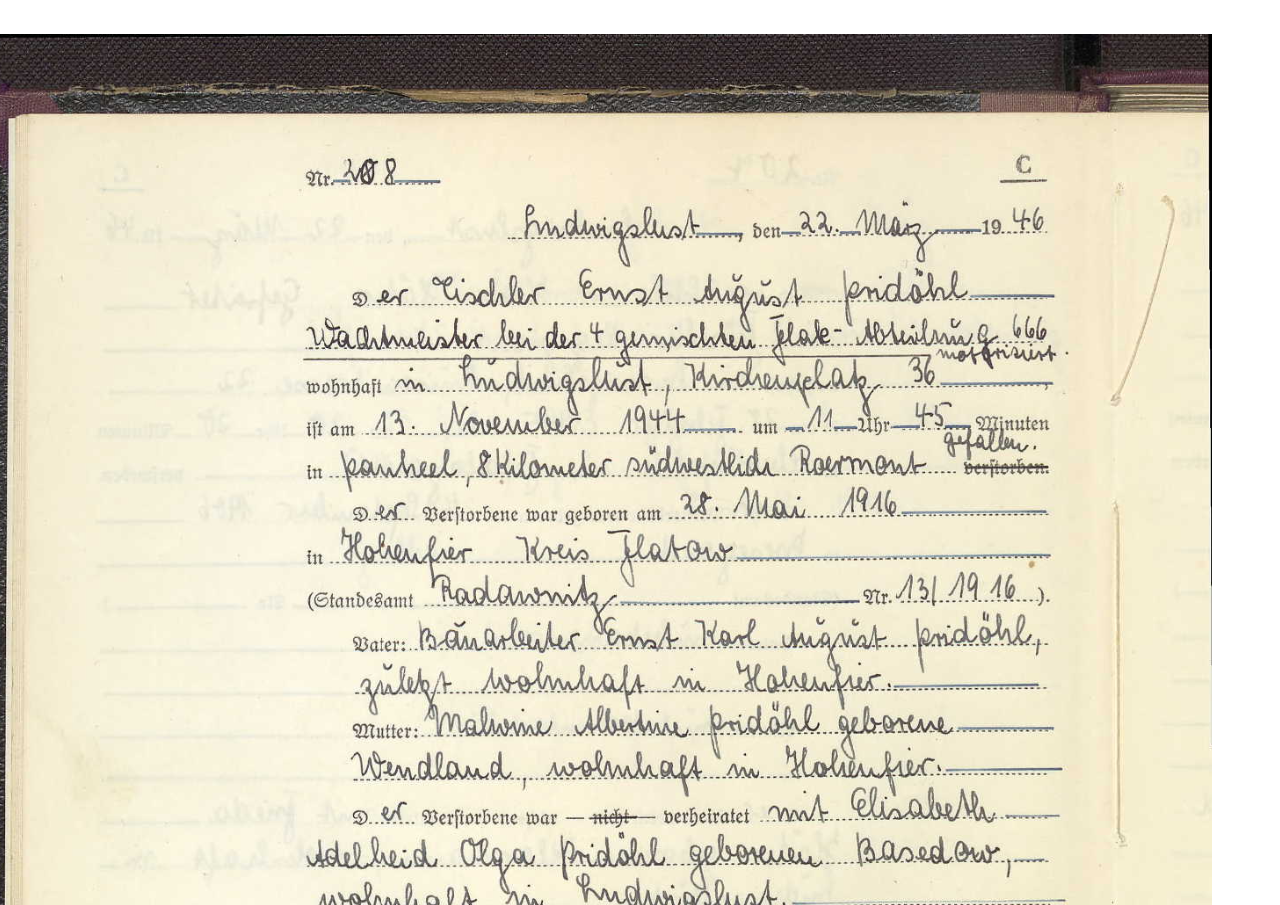 Nr. 208 C
Ludwigslust, den 22. März 1946
Der Tischler Ernst August Pridöhl
Wachtmeister bei der 4 gemischten Flak-Abteilung 666
motorisiert.
wohnhaft in Ludwigslust, Kirchenplatz 36
ist am 13. November 1944 um 11 Uhr 45 Minuten
gefallen.
in Panheel, 8 Kilometer südwestlich Roermont verstorben.
Der Verstorbene war geboren am 28. Mai 1916
in Hohenfier Kreis Flatow
(Standesamt Radawnitz Nr. 13/1916).
Vater: Bauarbeiter Ernst Karl August Pridöhl,
zuletzt wohnhaft in Hohenfier.
Mutter: Malwine Albertine Pridöhl geborene
Wendland, wohnhaft in Hohenfier.
Der Verstorbene war — nicht — verheiratet mit Elisabeth
Adelheid Olga Pridöhl geborenen Basedow,
wohnhaft in Ludwigslust.